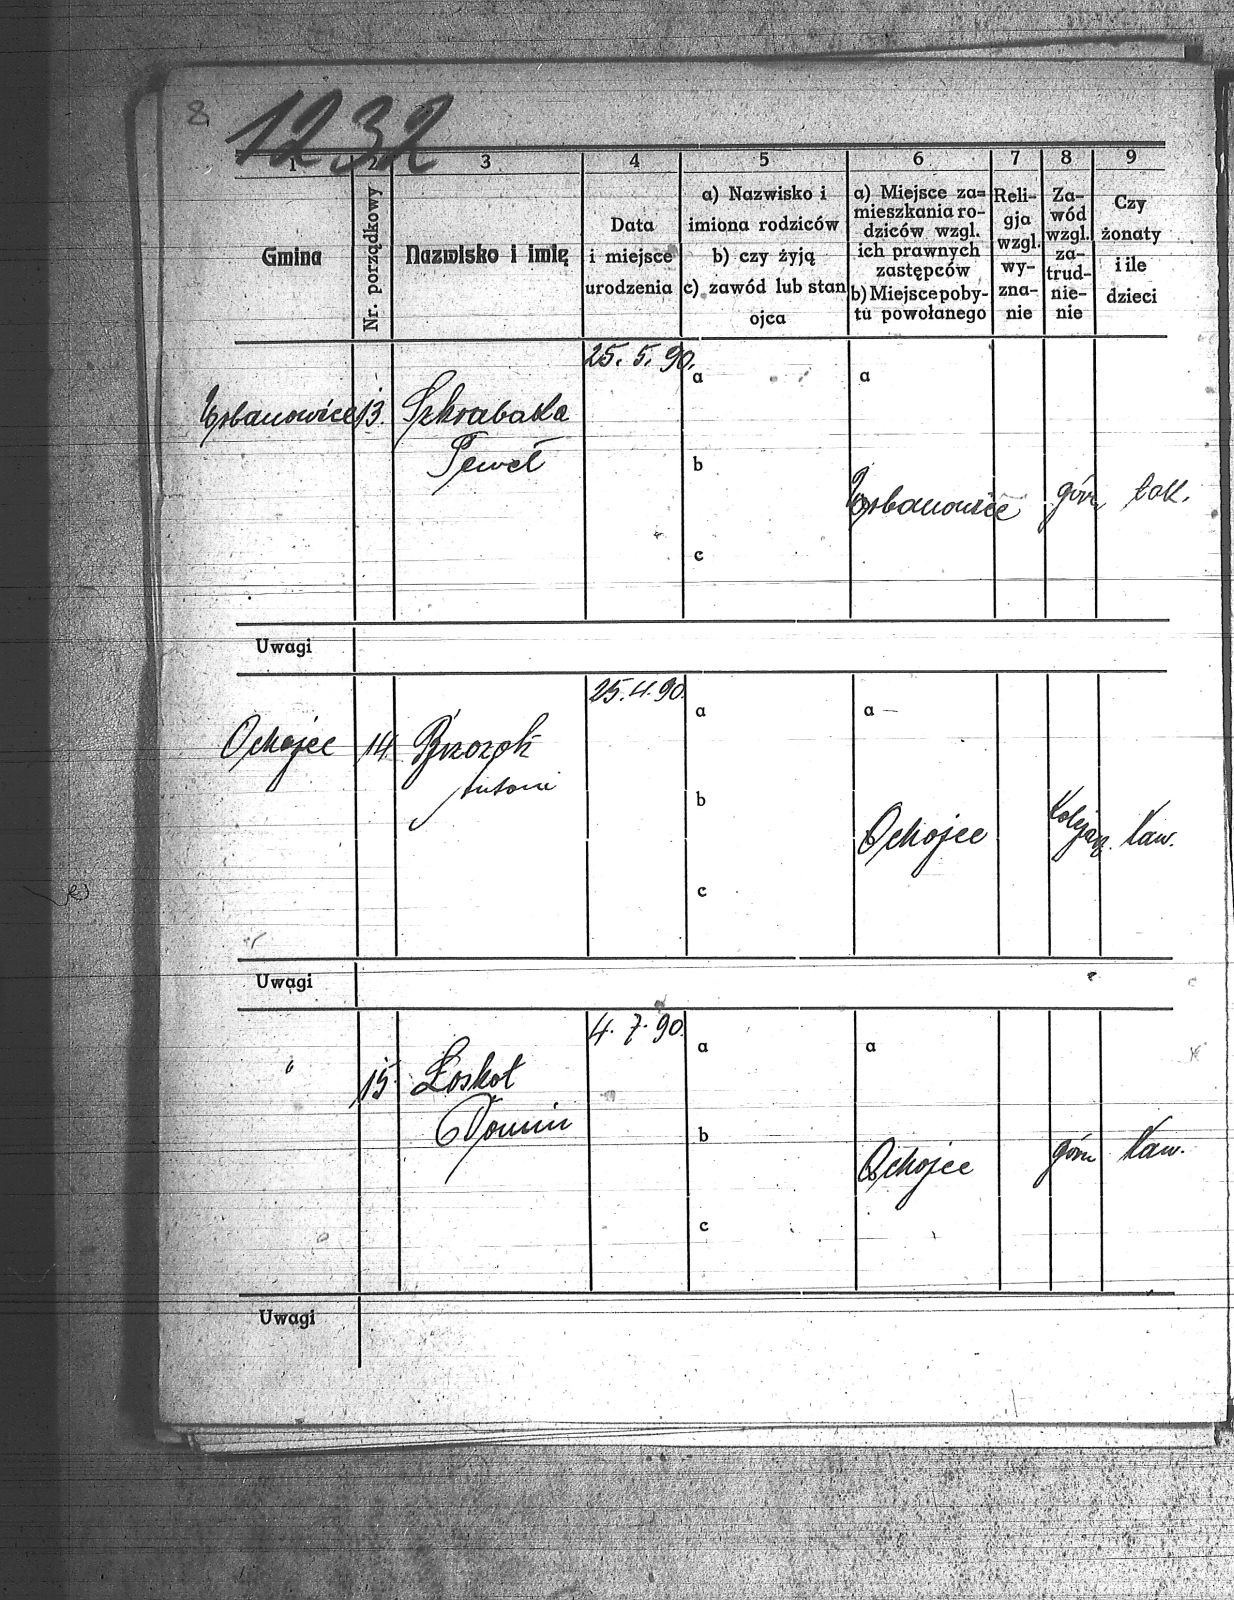 8
1232
1 2 3 4 5 6 7 8 9
Gmina
Nr. porządkowy
Nazwisko i imię
Data
i miejsce
urodzenia
a) Nazwisko i
imiona rodziców
b) czy żyją
c) zawód lub stan
ojca
a) Miejsce za=
mieszkania ro-
dziców wzgl.
ich prawnych
zastępców
b) Miejsce poby-
tu powołanego
Reli-
gja
wzgl.
wy-
zna-
nie
Za-
wód
wzgl.
za-
trud-
nie-
nie
Czy
żonaty
i ile
dzieci
25. 5. 90.
a a
Urbanowice 13. Szkrabaka
Paweł
b
Urbanowice górn. tak.
c
Uwagi
25. 4. 90.
a a
Ochojec 14. Brzozok
Antoni
b
Ochojec Kolejarz. Kaw.
c
Uwagi
4. 7. 90.
a a
" 15. Łoskot
Domin
b
Ochojec górn Kaw.
c
Uwagi